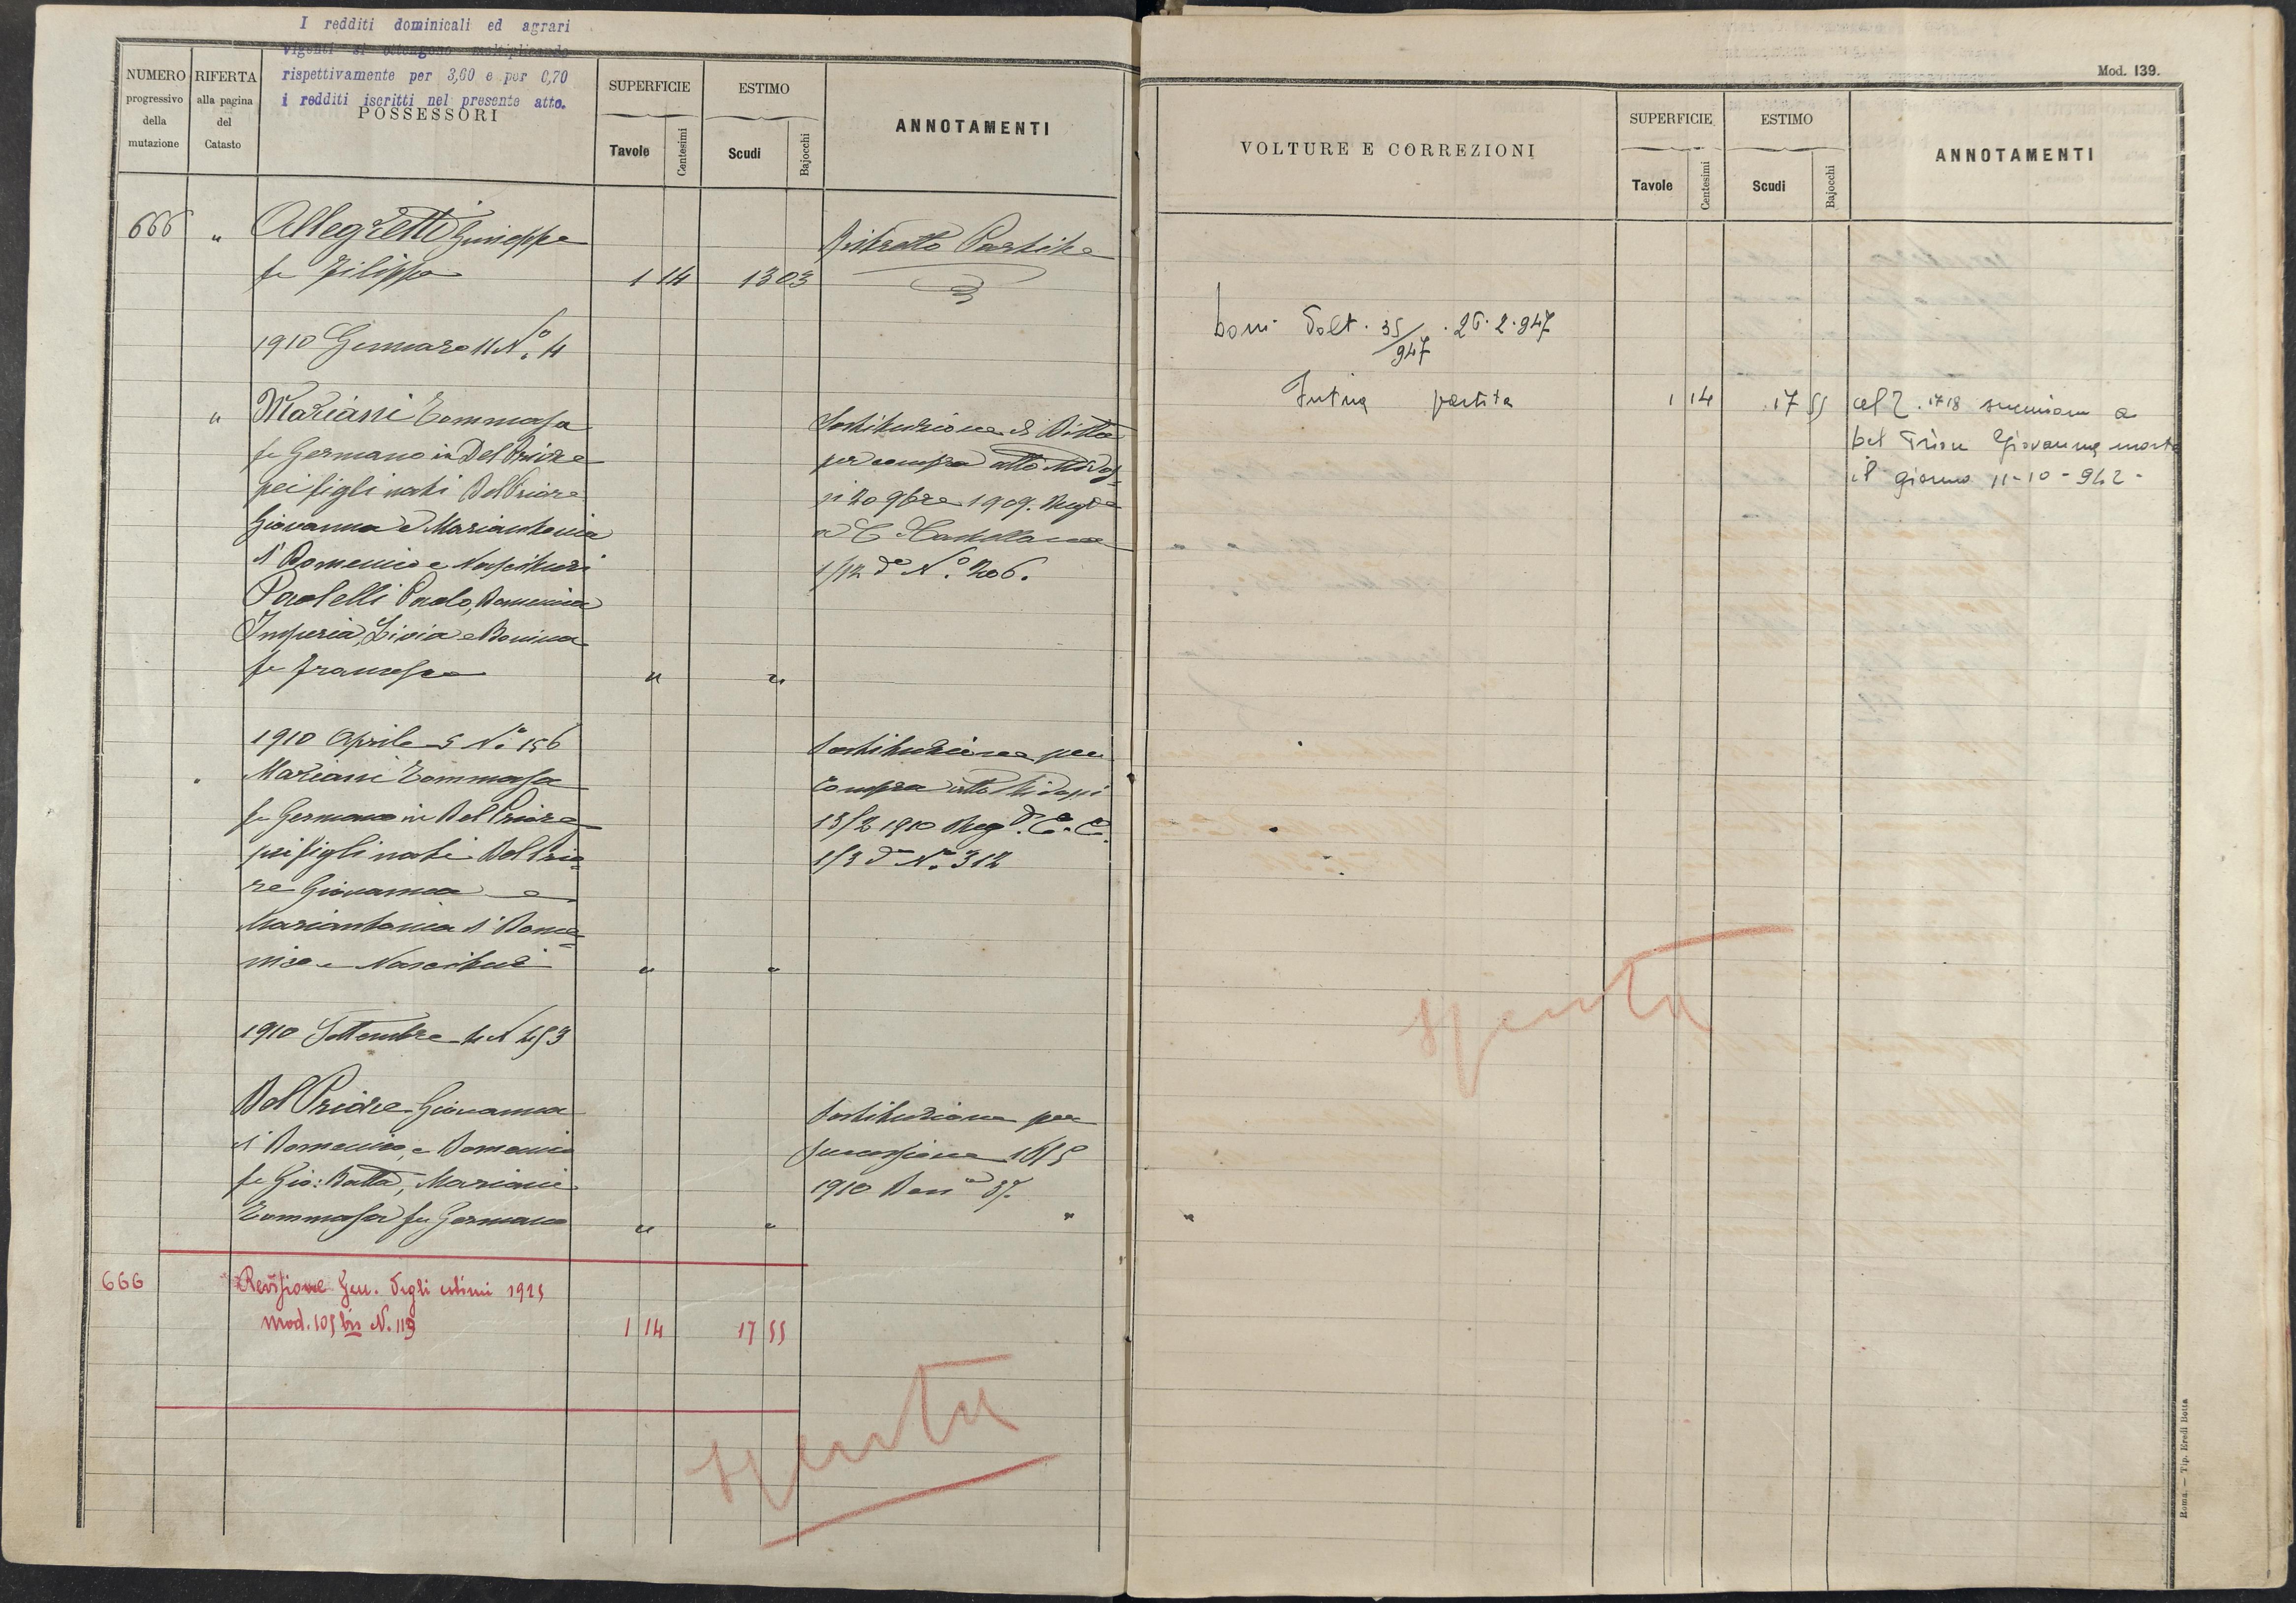 I redditi dominicali ed agrari
vigenti si ottengono moltiplicando
rispettivamente per 3,60 e per 0,70
i redditi iscritti nel presente atto.
NUMERO
progressivo
della
mutazione
RIFERTA
alla pagina
del
Catasto
POSSESSORI
SUPERFICIE
Tavole
Centesimi
ESTIMO
Scudi
Bajocchi
ANNOTAMENTI
666 " Allegretti Giuseppe
fu Filippo 1 14 13 03
Ristretto Partite
1910 Gennaro 11 N.º 4
" Mariani Tommasa
fu Germano in Del Priore
pei figli nati Del Priore
Giovanna e Mariantonia
di Domenico e Nascituri
Paolelli Paolo, Domenica
Imperia, Livia e Bonina
fu Francesco " "
Sostituzione di Ditta
per compra atto
20 9bre 1909. Reg.
a C. Castellana
1/12 do N.º 206.
1910 Aprile 5 N.º 156
Mariani Tommasa
fu Germano in Del Priore
pei figli nati Del Prio=
re Giovanna e
Mariantonia di Dome=
nico e Nascituri " "
Sostituzione per
Compra atto
13/2 1910 Reg. C. C.
1/3 do N.º 312
1910 Settembre N 453
Del Priore Giovanna
di Domenico, e Domenico
fu Gio: Batta, Mariani
Tommasa fu Germano " "
Sostituzione per
successione
1910 Den 37.
666 Revisione Gen. degli estimi 1925
mod. 105 bis N. 113 1 14 17 55
spenta
Mod. 139.
VOLTURE E CORREZIONI
SUPERFICIE
Tavole
Centesimi
ESTIMO
Scudi
Bajocchi
ANNOTAMENTI
Volt. 35/947 . 26.2.947
Intera partita 1 14 17 55
al 2. 1718 successione a
Del Priore Giovanna morta
il giorno 11-10-942-
spenta
Roma. — Tip. Eredi Botta